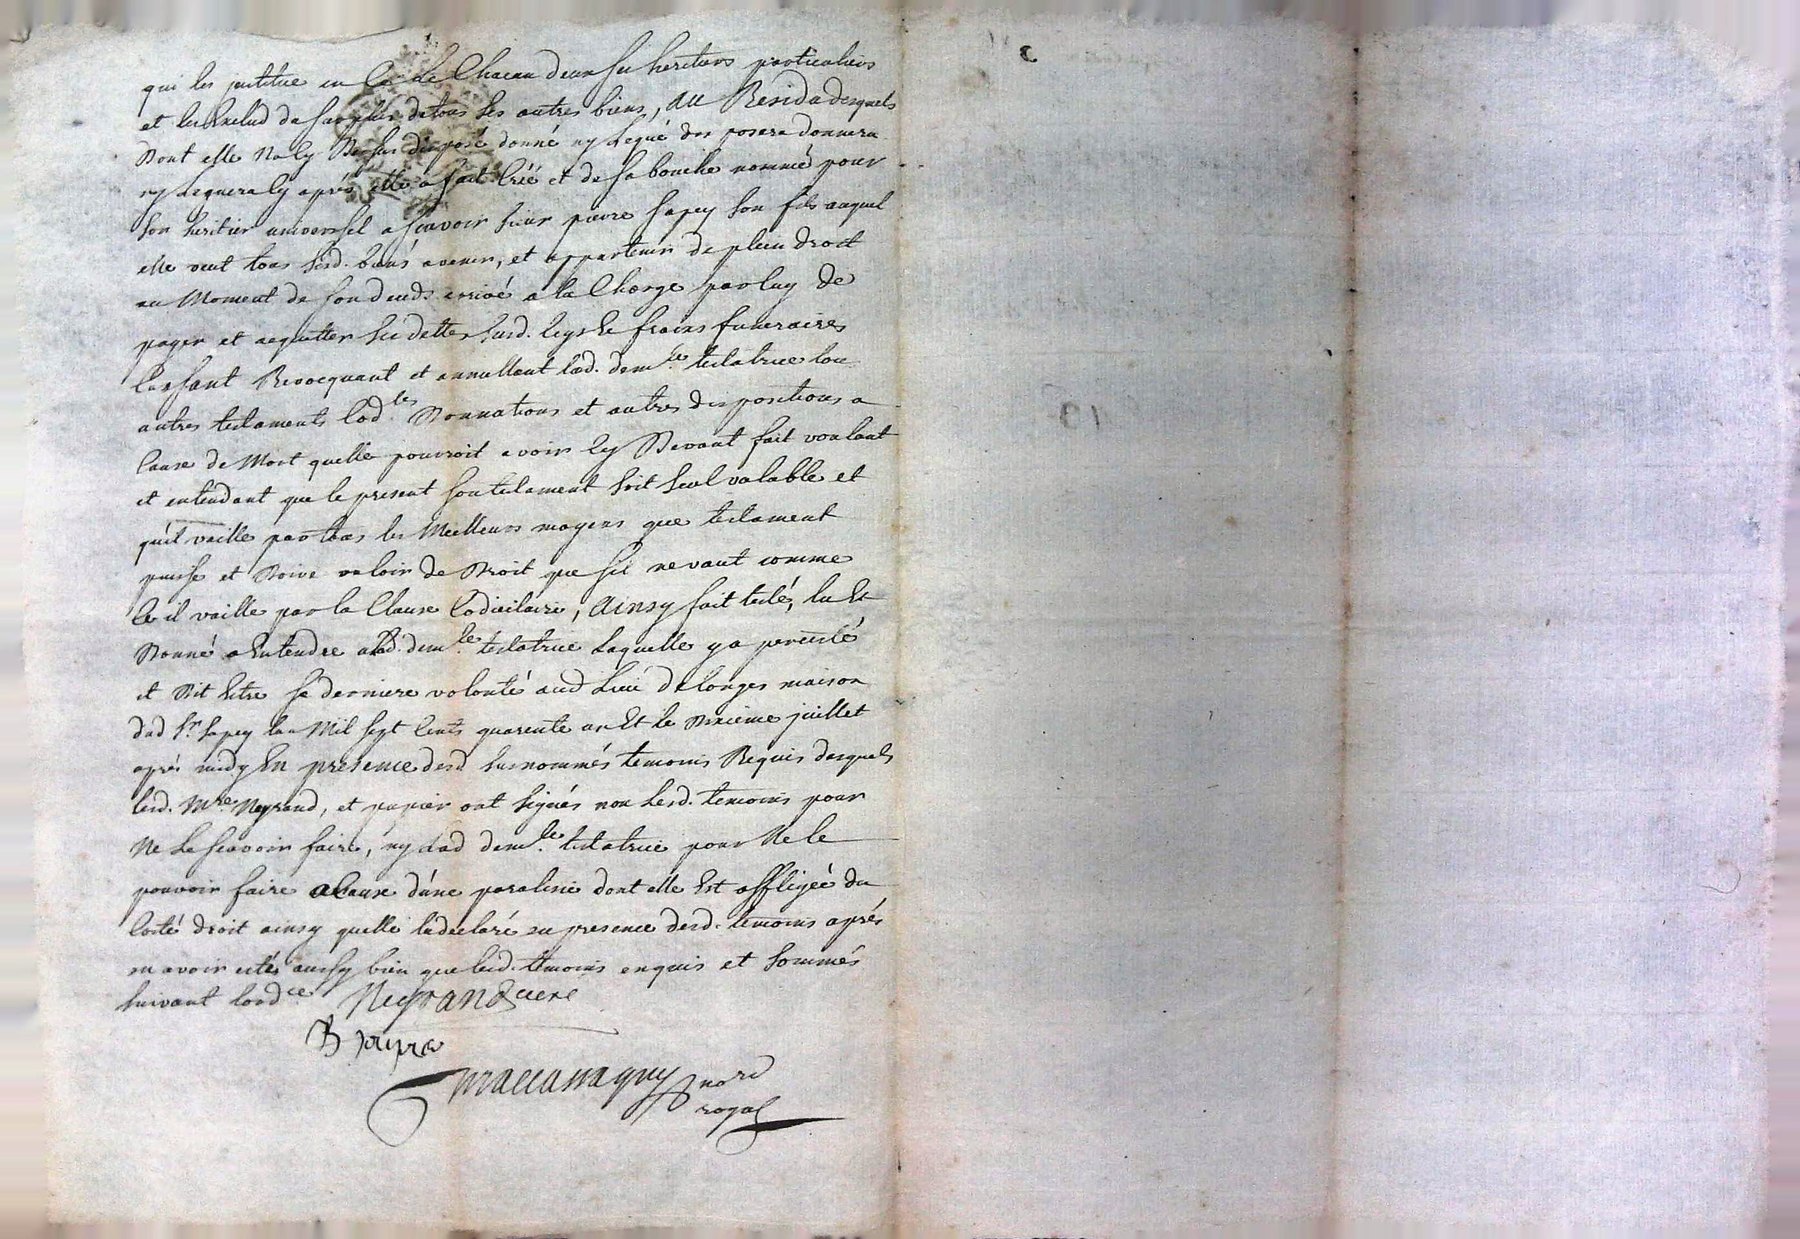 qui les jnstitue en ce de Chacun deux ses heritiers particuliers
et les Exclud de sa plus de tous ses autres biens, Au Residu desquels
Dont elle Na Cy Dessus disposé donné ny Legué disposera donnera
ny Leguera Cy aprés elle a fait Créé et de sa bouche nommé pour
Son heritier universel a scavoir sieur pierre Sapey Son fils auquel
elle veut tous sesd. biens avenir, et appartenir de plein droit
au Moment de son deceds arrivé a la Charge par luy de
payer et acquitter ses dettes susd. legs Et fraix funeraires
Cassant Revocquant et annullant lad. dem.le testatrice tou
autres testaments Codles Donnations et autres dispositions a
Cause de Mort quelle pourroit avoir Cy Devant fait voulant
et entendant que le present son testament soit Seul valable et
quil vaille par tous les Meilleurs moyens que testament
puisse et Doive valoir de Droit que sil ne vaut comme
Ce il vaille par la Clause Codicilaire, Ainsy fait testé, lu Et
Donné a Entendre a lad. dem.le testatrice Laquelle y a percisté
et Dit Estre sa derniere volonté aud Lieu de longes maison
dud Sr. Sapey lan Mil Sept Cents quarente un Et le Dixieme juillet
aprés midy En presence desd susnommés temoins Requis desquels
lesd. Mre Neyrand, et papier ont signés non lesd. temoins pour
Ne Le scavoir faire, ny lad dem.le testatrice pour Ne le
pouvoir faire a Cause d'une paralisie dont elle Est affligée du
Costé droit ainsy quelle la declaré en presence desd. temoins aprés
en avoir estés aussy bien que lesd. temoins enquis et Sommés
suivant lordce Neyrand
nore
royal